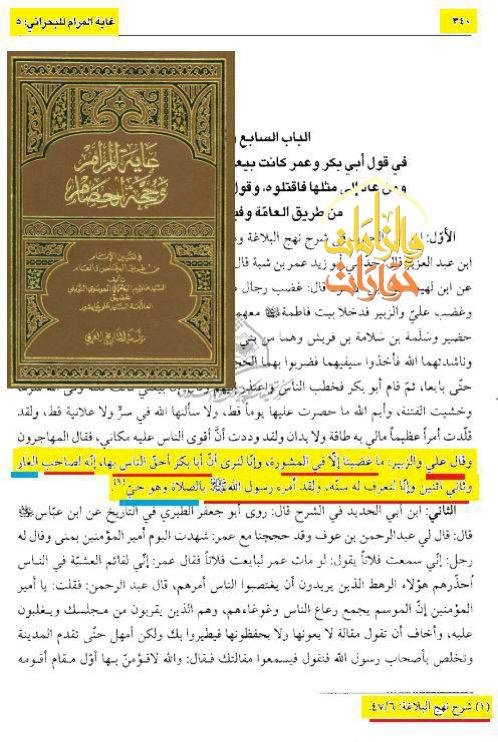 ٣٤٠
غاية المرام للبحراني: ٥
الباب السابع و
في قول أبي بكر وعمر كانت بيعة
ومن عاد إلى مثلها فاقتلوه، وقول
من طريق العامّة وفيه
غاية المرام
وحجة الخصام
في تعيين الإمام
من طريق الخاص والعام
حوارات
الأوّل: شرح نهج البلاغة
ابن عبد العزيز قال: أبو زيد عمر بن شبة قال
عن ابن لهيعة قال: غضب رجال
وغضب عليّ والزبير فدخلا بيت فاطمة معهم
حضير وسَلَمة بن سَلامة بن قريش وهما من بني
وناشدتهما الله فأخذوا سيفيهما فضربوا بهما الحجر
حتّى بايعا، ثمّ قام أبو بكر فخطب الناس واعتذر
وخشيت الفتنة، وأيم الله ما حصرت عليها يوماً قط، ولا سألتها الله في سرٍّ ولا علانية قط، ولقد
قلّدت أمراً عظيماً مالي به طاقة ولا يدان ولقد وددت أنَّ أقوى الناس عليه مكاني، فقال المهاجرون
وقال علي والزبير: ما غضبنا إلّا في المشورة، وإنّا لنرى أنَّ أبا بكر أحقّ الناس بها، إنّه لصاحب الغار
وثاني اثنين وإنّا لنعرف له سنّه، ولقد أمره رسول الله ﷺ بالصلاة وهو حيّ(١)
الثاني: ابن أبي الحديد في الشرح قال: روى أبو جعفر الطبري في التاريخ عن ابن عبّاس
قال: قال لي عبدالرحمن بن عوف وقد حججنا مع عمر: شهدت اليوم أمير المؤمنين بمنى وقال له
رجل: إنّي سمعت فلاناً يقول: لو مات عمر لبايعت فلاناً فقال عمر: إنّي لقائم العشيّة في الناس
أُحذّرهم هؤلاء الرهط الذين يريدون أن يغتصبوا الناس أمرهم، قال عبد الرحمن: فقلت: يا أمير
المؤمنين إنّ الموسم يجمع رعاع الناس وغوغاءهم، وهم الذين يقربون من مجلسك ويغلبون
عليه، وأخاف أن تقول مقالة لا يعونها ولا يحفظونها فيطيروا بك ولكن أمهل حتّى تقدم المدينة
وتخلص بأصحاب رسول الله فتقول فيسمعوا مقالتك فقال: والله لاقومنّ بها أوّل مقام أقومه
(١) شرح نهج البلاغة: ٤٧/٦.